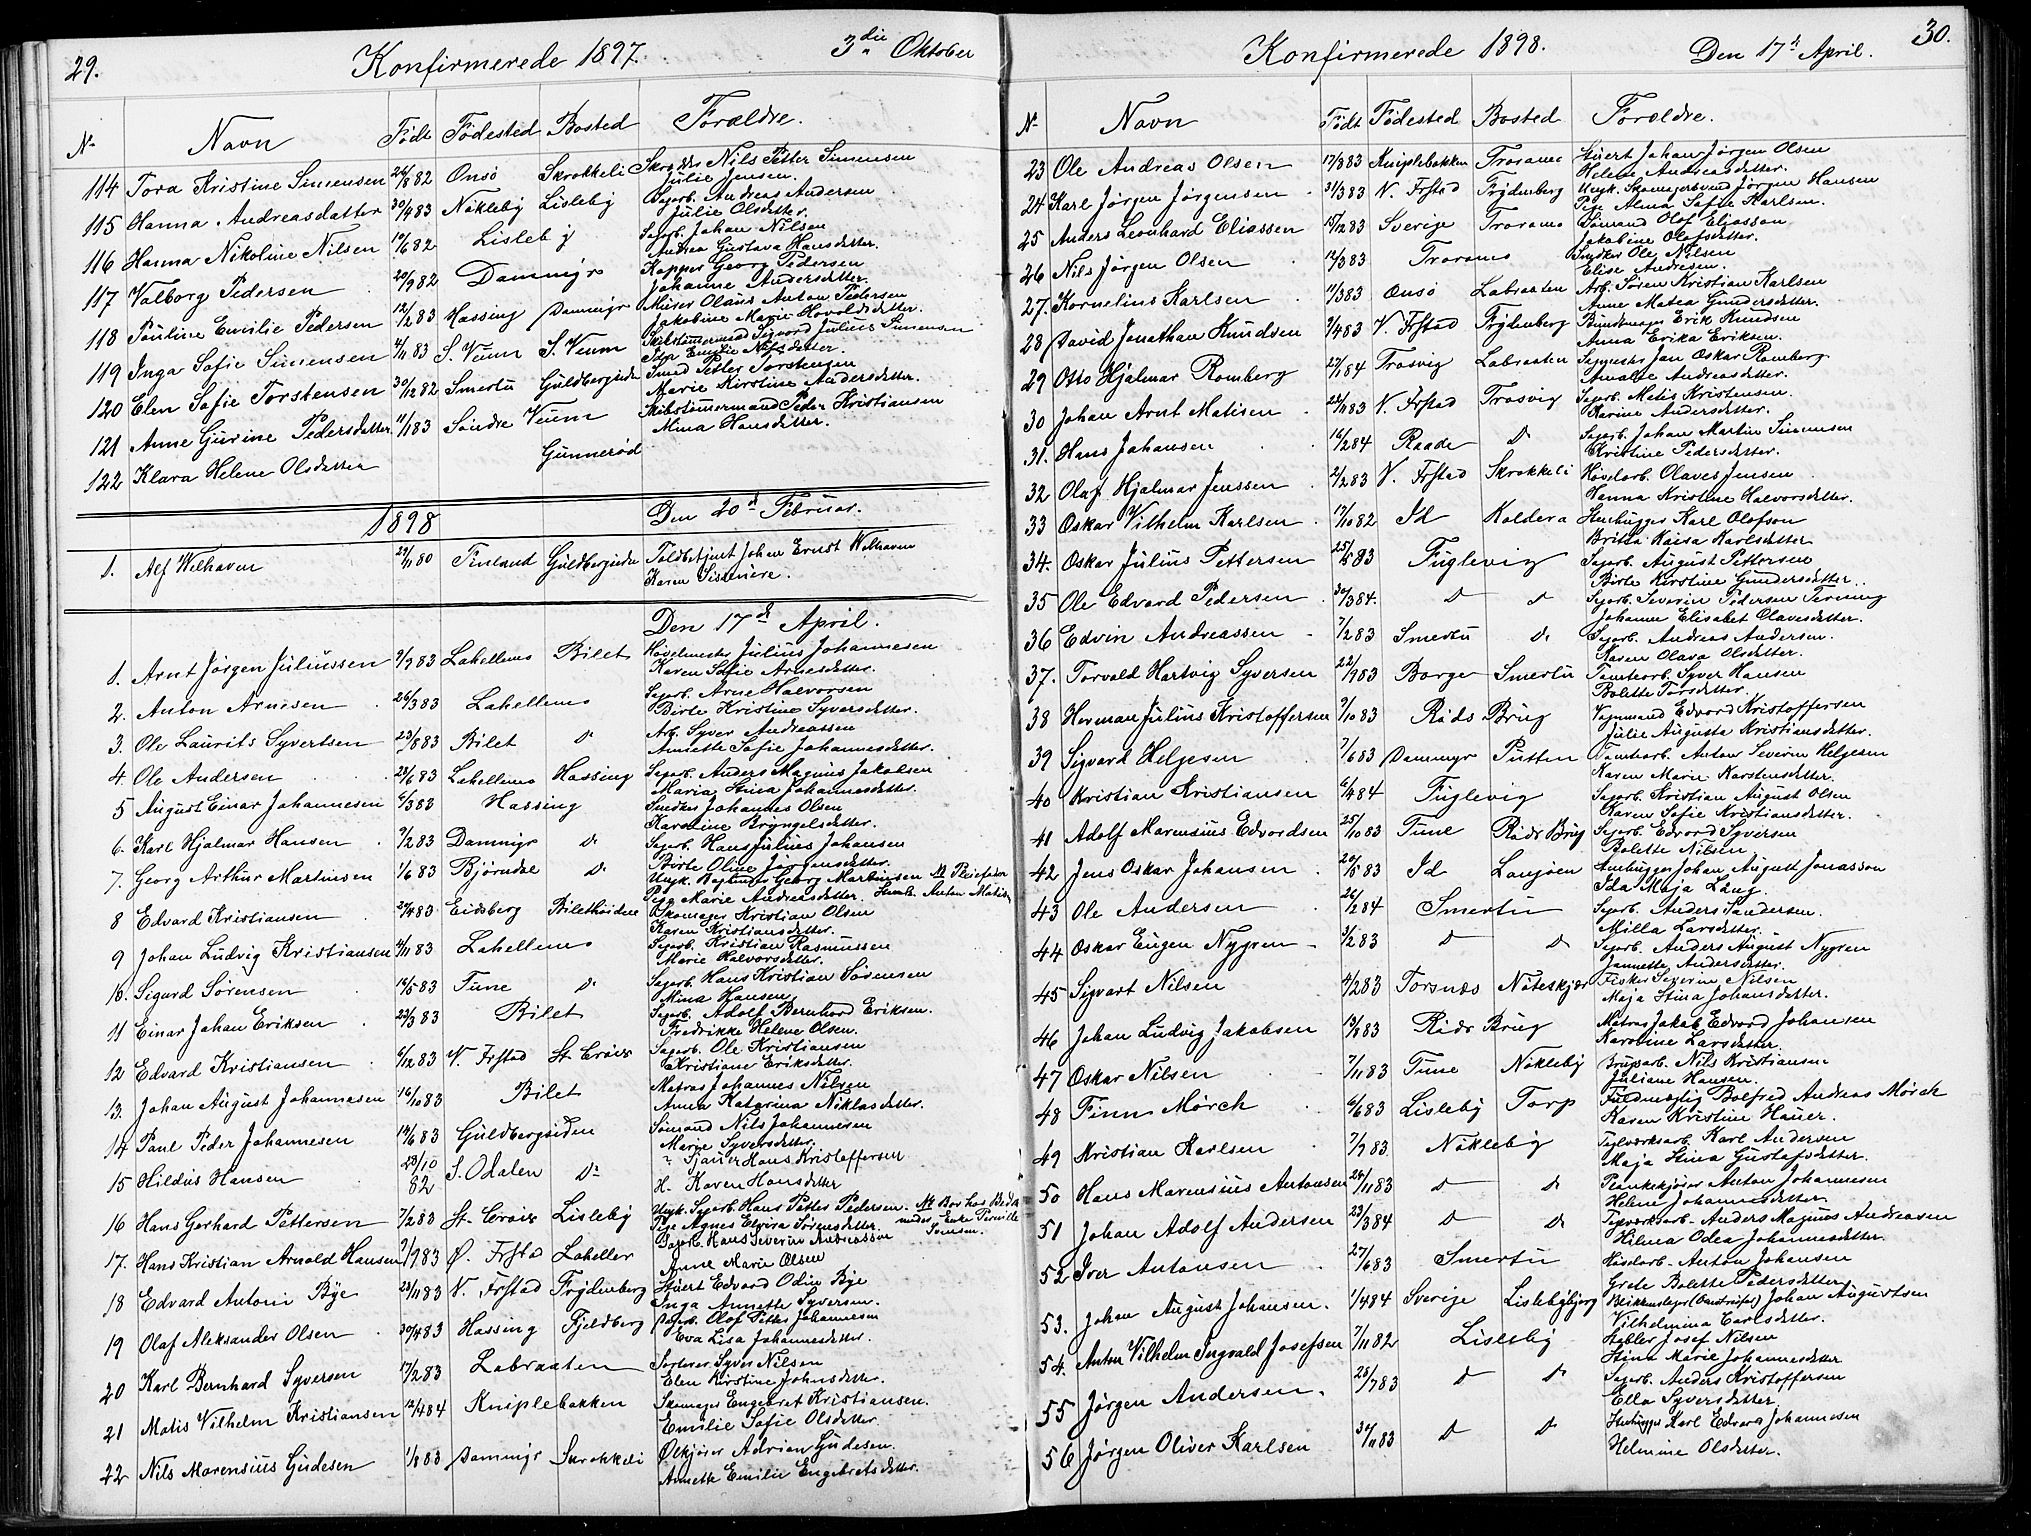 29. Konfirmerede 1897. 3die Oktober
No Navn Födt Födested Bosted Forældre.
114 Tora Kristine Simensen 24/8 82 Onsö Skrokkeli Nils Petter Simensen
Julie Jensen.
115 Hanna Andreasdatter 30/4 83 Nöklebÿ Lislebÿ Sagarb. Andreas Andersen
Julie Olsdatter.
116 Hanna Nikoline Nilsen 10/6 82 Lislebÿ Sagarb. Johan Nilsen
Andrea Gustava Hansdatter.
117 Valborg Pedersen 20/9 82 Dammÿr Kopper Georg Pedersen
Johanne Andersdatter.
118 Pauline Emilie Pedersen 12/2 83 Hassing Dammÿr Murer Olaus Anton Pedersen
Jakobine Marie Havoldsdatter.
119 Inga Sofie Simensen 4/11 83 S. Veum S. Veum Skibstömermand Sigvard Julius Simensen
Emilie Nilsdatter.
120 Elen Sofie Torstensen 30/12 82 Smertu Guldbergsiden Smed Petter Torstensen
Marie Kirstine Andersdatter.
121 Anne Gurine Pedersdatter 11/1 83 Söndre Veum Skibstömermand Peder Kristiansen
Mina Hansdatter.
122 Klara Helene Olsdatter Gunneröd
1898 Den 20d Februar.
1. Alf Welhaven 29/11 80 Finland Guldbergsiden Toldbetjent Johan Ernst Welhaven
Karen
Den 17d April.
1. Arnt Jörgen Juliussen 9/7 83 Lahellemo Bilet Hövelmester Julius Johannesen
Karen Sofie Arnesdatter.
2. Anton Arnesen 26/3 83 Lahellemo Sagarb. Arne Halvorsen
Birte Kristine Syversdatter.
3. Ole Laurits Syvertsen 23/8 83 Bilet do Arb. Syver Andreassen
Annette Sofie Johannesdatter.
4 Ole Andersen 28/6 83 Lahellemo Hassing Sagarb. Anders Magnus Jakobsen
Maria Stina Johannesdatter.
5 August Einar Johannesen 6/3 83 Hassing Snedker Johannes Olsen
Karoline Bryngelsdatter.
6. Karl Hjalmar Hansen 9/2 83 Dammÿr do Sagarb. Hans Julius Johansen
Birte Oline Jörgensdatter.
7. Georg Arthur Martinsen 1/6 83 Björndal do Ungk. Georg Martinsen Nb Pleiefader
Pige Marie Andreasdatter. Anton Matisen
8 Edvard Kristiansen 27/4 83 Eidsberg Bilethöiden Skomager Kristian Olsen
Karen Kristiansdatter.
9 Johan Ludvig Kristiansen 4/11 83 Lahellemo Sagarb. Kristian Rasmussen
Marie Halvorsdatter.
10. Sigurd Sörensen 16/5 83 Tune do Sagarb. Hans Kristian Sörensen
Mina Hansen
11 Einar Johan Eriksen 22/3 83 Bilet Sagarb. Adolf Bernhard Eriksen.
Fredrikke Helene Olsen.
12 Edvard Kristiansen 6/12 83 V. Frstad St. Croix Sagarb. Ole Kristiansen
Kristiane Eriksdatter.
13. Johan August Johannesen 16/10 83 Bilet Matros Johannes Nilsen
Anna Katarina Niklasdatter.
14 Paul Peder Johannesen 14/6 83 Guldbergsiden Sömand Nils Johannesen
Marie Syversdatter.
15 Hildus Hansen 28/10 82 S. Odalen do Hans Kristoffersen
H. Karen Hansdatter
16 Hans Gerhard Pettersen 7/2 83 St. Croix Lislebÿ Ungk. Sagarb. Hans Petter Pedersen. Nb Bor hos Bedste
Pige Agnes Elvira Sörensdatter. moder Enke Pernille
17. Hans Kristian Arnold Hansen 9/9 83 Ö. Frstad Lahellen Sagarb. Hans Severin Andreassen
Anne Marie Olsen
18 Edvard Antoni Bÿe 22/11 83 V. Frstad Frÿdenberg Stuert Edvard Odin Bÿe
Inga Annette Syversen.
19 Olaf Aleksander Olsen 30/4 83 Hassing Fjeldberg Sagarb. Olof Petter Johannesen
Eva Lisa Johannesdatter.
20 Karl Bernhard Syversen 17/2 83 Labraaten Sorterer Syver Nilsen
Elen Kirstine Johnsdatter.
21 Matis Vilhelm Kristiansen 12/4 84 Kniplebakken Skomager Engebret Kristiansen.
Emilie Sofie Olsdatter.
22 Nils Marensius Gudesen 1/8 83 Dammÿr Skrokkeli Ölkjörer Adrian Gudesen.
Annette Emilie Engebretsdatter.
Konfirmerede 1898. Den 17d April. 30.
No Navn Födt Födested Bosted Forældre.
23 Ole Andreas Olsen 17/3 83 Kniplebakken Traramo Stuert Johan Jörgen Olsen
Helene Andreasdatter.
24 Karl Jörgen Jörgensen 31/3 83 V. Frstad Frÿdenberg Ungk. Skomagersvend Jörgen Hansen
Pige Alma Sofie Karlsen.
25 Anders Leonhard Eliassen 15/12 83 Sverige Traramo Sömand Olof Eliasson
Jakobine Olofsdatter.
26 Nils Jörgen Olsen 12/3 83 Traramo Snedker Ole Nilsen
Elise Andresen.
27. Kornelius Karlsen 11/3 83 Onsö Labraaten Arb. Sören Kristian Karlsen
Anne Matea Gundersdatter.
28 David Jonathan Knudsen 9/4 83 V. Frstad Frÿdenberg Buntmager Erik Knudsen
Anna Erika Eriksen.
29 Otto Hjalmar Romberg 27/1 84 Trosvig Labraaten Sagmester Jan Oskar Romberg
Amalie Andreasdatter.
30 Johan Arnt Matisen 22/11 83 V. Frstad Trosvig Sagarb. Matis Kristensen.
Karine Andersdatter.
31. Hans Johansen 16/2 84 Raade do Sagarb. Johan Martin Simensen
Kristine Pedersdatter.
32 Olaf Hjalmar Jenssen 2/2 83 V. Frstad Skrokkeli Hövlearb. Olaves Jensen
Hanna Kristine Halvorsdatter.
33 Oskar Vilhelm Karlsen 17/10 82 Id Koldera Stenhugger Karl Olofson
Britta Kaisa Karlsdatter
34. Oskar Julius Pettersen 25/5 83 Fuglevig Sagarb. August Pettersen
Birte Kirstine Gundersdatter.
35 Ole Edvard Pedersen 30/3 84. do do Sagarb. Severin Pedersen
Johanne Elisabet Olavesdatter.
36 Edvin Andreassen 7/2 83 Smertu do Sagarb. Andreas Andersen.
Karen Olava Olsdatter.
37. Torvald Hartvig Syversen 22/9 83 Borge Smertu Tomtearb. Syver Hansen
Bolette Torsdatter.
38 Herman Julius Kristoffersen 9/10 83 Röds Brug Vognmand Edvard Kristoffersen
Julie Augusta Kristiansdatter.
39 Sigvard Helgesen 7/6 83 Dammyr Putten Tomtearb. Anton Severin Helgesen
Karen Marie Karstensdatter.
40 Kristian Kristiansen 6/4 84 Fuglevig Sagarb. Kristian August Olsen
Karen Sofie Kristiansdatter.
41 Adolf Marensius Edvardsen 25/10 83 Tune Röds Brug Sagarb. Edvard Syversen
Bolette Nilsen
42 Jens Oskar Johansen 20/5 83 Id Lanjöen Stenhugger Johan August Jonasson
Ida Maja Lang.
43 Ole Andersen 26/2 84 Smertu Sagarb. Anders Sandersen.
Milla Larsdatter.
44 Oskar Eugen Nygren 3/2 83 do do Sagarb. Anders August Nygren
Jannette Andersdatter.
45 Sigvart Nilsen 4/2 83 Torsnæs Nöteskjær Fisker Severin Nilsen
Maja Stina Johansdatter.
46 Johan Ludvig Jakobsen 13/8 83 Röds Brug Matros Jakob Edvard Johansen
Karoline Larsdatter.
47 Oskar Nilsen 7/11 83 Tune Nöklebÿ Brugsarb. Nils Kristiansen
Juliane Hansen.
48 Finn Mörch 6/6 83 Lislebÿ Torp Fuldmægtig Bolfred Andreas Mörch
Karen Kristine Hauer.
49 Kristian Karlsen 7/9 83 Nöklebÿ Teglværksarb. Karl Andersen
Maja Stina Gustafsdatter.
50 Hans Marensius Antonsen 26/11 83 do do Plankekjörer Anton Johannesen
Helene Johannesdatter.
51 Johan Adolf Andersen 23/3 84 do do Teglværksarb. Anders Magnus Andreasen
Hilma Odea Johannesdatter.
52 Iver Antonsen 27/6 83 Smertu Husarb. Anton Johansen
Grete Bolette Pedersdatter
53. Johan August Johansen. 1/4 84 Sverige Lislebÿbjerg Blikkenslager Johan Augustsen
Vilhelmina Carlsdatter.
54. Anton Vilhelm Ingvald Josefsen 7/11 82 Lislebÿ Stabler Josef Nilsen
Stina Marie Johannesdatter
55 Jörgen Andersen. 26/7 83 do do Sagarb. Anders Kristoffersen
Ella Syversdatter
56 Jörgen Oliver Karlsen 30/11 83 do do Stenhugger Karl Edvard Johannesen
Helmine Olsdatter.